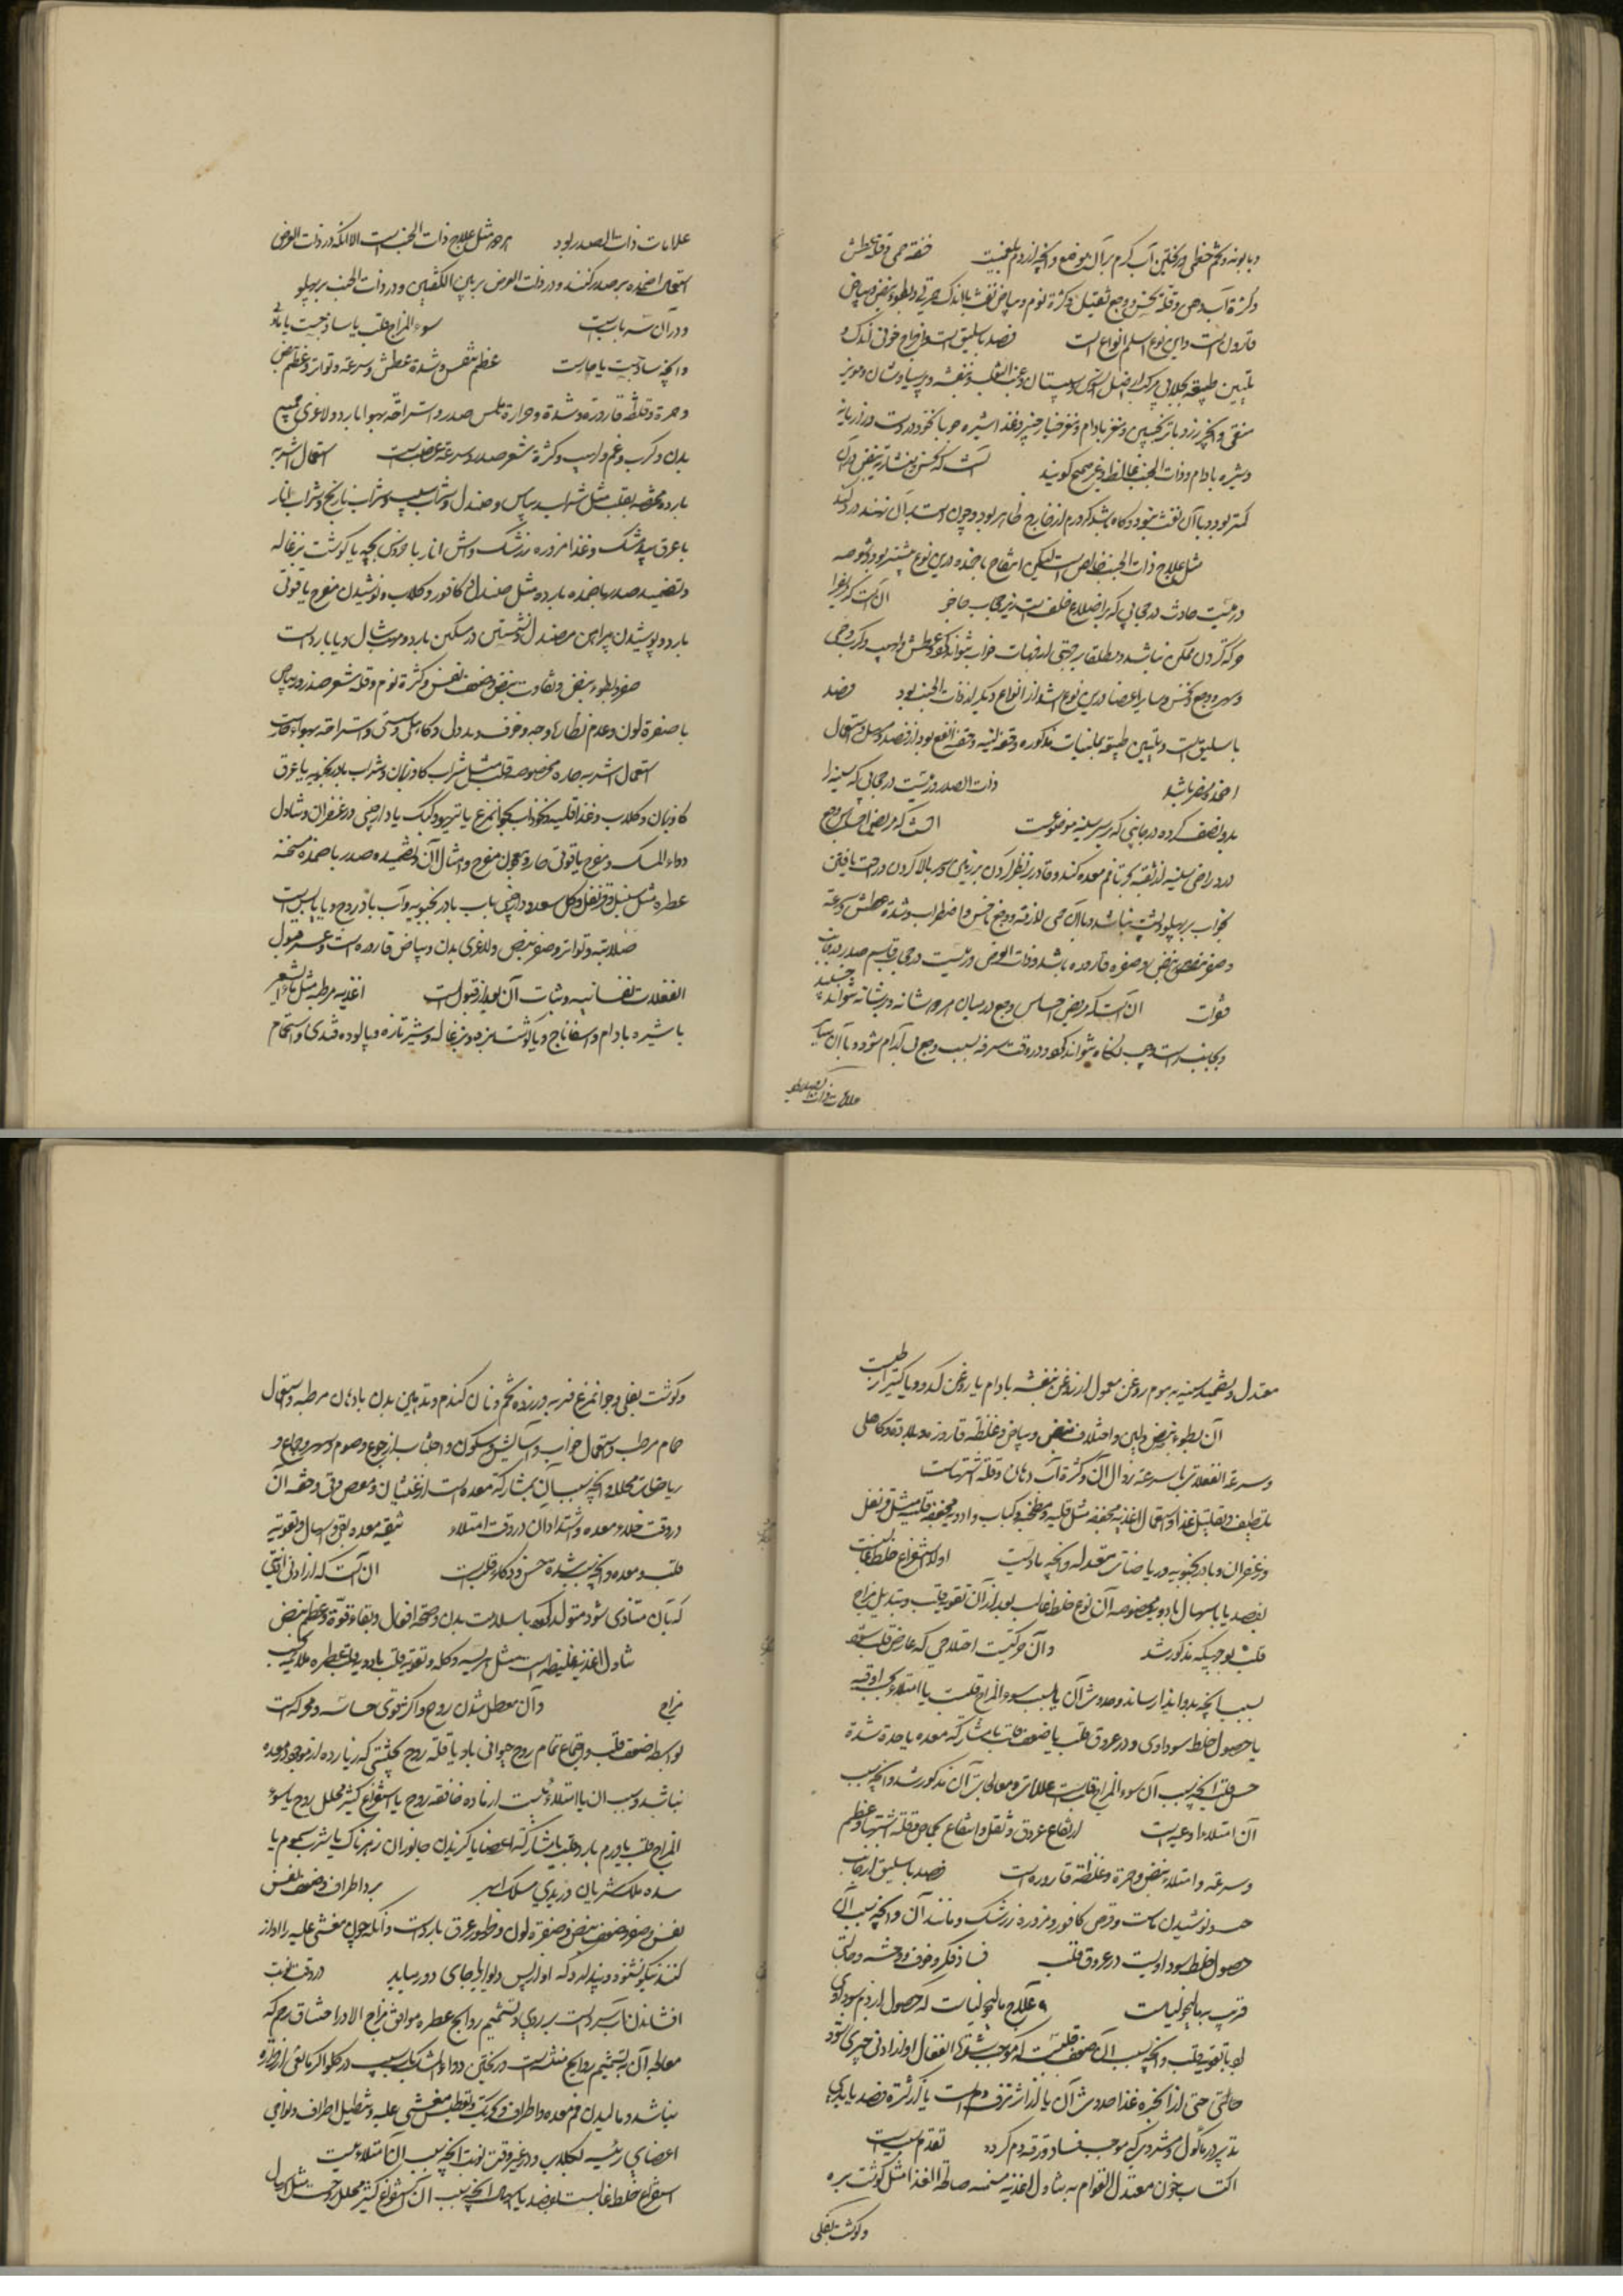 و بابونه و تخم خطمی و ریختن آب گرم بر آن موضع و آنچه از دم بلغمیست خفة حمی و قلة عطش
و کثرة آب دهن و قلة نخس و وجع ثقیل و کثرة نوم و بیاض نفث یا اندک حمرتی و بطوء نبض و بیاض
قاروره است و این نوع اسلم انواع است فصد باسلیق است و اخراج خونی اندک و
تلیین طبیعة بجلابی مرکب از اصل السوس و سپستان و عنب الثعلب و بنفشه و پرسیاوشان و مویز
منقی و انجیر زرد با ترنجبین و مغز بادام و مغز خیار چنبر و غذا شیره جو با نخود در وست و رازیانه
و شیره بادام و ذات الجنب مغالط و غیر صحیح گویند آنست که نخس و منشاریة نبض در آن
کمتر بود و با آن نفث نبود و گاه باشد که ورم از خارج ظاهر بود و چون دست بر آن نهند درد کند
مثل علاج ذات الجنب خالص است لیکن انتفاع باضمده درین نوع بیشتر بود و شوصه
ورمیست حادث در حجابی که بر اضلاع خلف است زیر حجاب حاجز آنست که مریض را
حرکة کردن ممکن نباشد و مطلقا بر جنبی از جنبات خواب نتواند کرد و عطش و لهیب و کرب و حمی
و سهر و وجع و نخس و سایر اعضا درین نوع اشد از انواع دیگر از ذات الجنب بود فصد
باسلیق است و تلیین طبیعة بملینات مذکوره و حقنه لینه و حقنه انفع بود از فصد و مسهل و استعمال
اضمده مضر باشد ذات الصدر ورمیست در حجابی که سینه را
بدو نصف کرده در جانبی که بر سر سینه موضوعست آنست که مریض احساس وجع
در وراضی سینه از ثغنه نحر تا فم معده کند و قادر بر نظر کردن بزمین و سر بالا کردن و راحت یافتن
بخواب بر پهلو و پشت نباشد و با آن حمی لازمه و وجع ناخس و اضطراب و شدة عطش و سرعة
و صفر نبض و صفره قاروره باشد و ذات العرض ورمیست در حجاب قاسم صدر در جانب
قفا است آنست که مریض احساس وجع در میان هر دو شانه و شانه نتواند جنبید
و بجانب راست و چپ نگاه نتواند کرد و در وقت سرفه بسبب وجع بی آرام شود و با آن سایر
علامات ذات الصدر بود
علامات ذات الصدر بود هر دو مثل علاج ذات الجنب است الا آنکه در ذات العرض
استعمال اضمده بر صدر کنند و در ذات العرض بر بین الکتفین و در ذات الجنب بر پهلو
و در آن سه بابست سوء المزاج قلب یا ساذجیست یا مادی
و آنچه ساذجست یا حارست عظم تنفس و شدة عطش و سرعة و تواتر و عظم نبض
و حمرة و غلظة قاروره و شدة و حرارة ملمس صدر و استراحة بهواء بارد و لاغری جمیع
بدن و کرب و غم و لهیب و کثرة شعر صدر و سرعة غضب است استعمال اشربه
بارده مخصوصه بقلب مثل شراب ریباس و صندل و شراب سیب و شراب نارنج و شراب انار
با عرق بیدمشک و غذا مزوره زرشک و آش انار با خروس بچه یا گوشت بزغاله
و تضمید صدر باضمده بارده مثل صندل و کافور و گلاب و نوشیدن مفرح یاقوتی
بارد و پوشیدن پیراهن مرصندل و نشستن در مسکن بارد و مروب شمال و یا بارد است
صغر و بطوء نبض و تفاوت نبض و ضعف نفس و کثرة نوم و قلة شعر صدر و بیاض
با صفرة لون و عدم نظارة وجه و خوف و بددلی و کاهلی و سستی و استراحة بهواء حار است
استعمال اشربه حاره مخصوصه قلب مثل شراب گاوزبان و شراب بادرنجبویه با عرق
گاوزبان و گلاب و غذا قلیه و نخوداب بجوانه مرغ یا تیهو و کبک با دارچینی و زعفران و تناول
دواء المسک و مفرح یاقوتی حار و معجون مفرح و امثال آن و تضمید صدر باضمده مسخنه
عطره مثل سنبل و قرنفل و گل سعد و دارچینی باب بادرنجبویه و آب بادروج و یا یابس است
صلابة و تواتر و صغر نبض و لاغری بدن و بیاض قاروره است و عسر قبول
انفعالات نفسانیه و ثبات آن بعد از قبول است اغذیه مرطبه مثل ماء الشعیر
با شیره بادام و اسفناج و یا گوشت بره و بزغاله و شیر تازه و پالوده قندی و استحمام
معتدل و تضمید سینه بموم روغن معمول از روغن بنفشه بادام یا روغن کدو و یا کتیرا رطبست
آن بطوء نبض و لین و اختلاف نبض و بیاض و غلظة قاروره و بلادة و کاهلی
و سرعة انفعالات با سرعة زوال آن و کثرة آب دهان و قلة اشتهاست
تلطیف و تقلیل غذا و استعمال اغذیه مجففه مثل قلیه و مطجنه و کباب و ادویه مجففه قلبیه مثل قرنفل
و زعفران و بادرنجبویه و ریاضات معتدله و آنچه مادیست اولا استفراغ خلط غالبست
بفصد یا باسهال بادویه مخصوصه آن نوع خلط غالب بعد از آن تقویه قلب و تبدیل مزاج
قلب بوجهی که مذکور شد و آن حرکتیست اختلاجی که عارض قلب شود
بسبب آنچه بدو ایذا رساند و حدوث آن یا بسبب سوء المزاج قلبست یا امتلاء بحسب اوعیه
یا حصول خلط سوداوی و در عروق قلب یا ضعف قلب یا مشارکة معده یا حدة شدة
حس قلب آنچه بسبب آن سوء المزاج قلب است علامات و معالجات آن مذکور شد و آنچه بسبب
آن امتلاء اوعیه است ارتفاع عروق و ثقل و انتفاع بحجامة و قلة اشتها و عظم
و سرعة و امتلاء نبض و حمرة و غلظة قاروره است فصد باسلیق از جانب
و نوشیدن ماست و قرص کافور و مزوره زرشک و مانند آن و آنچه بسبب آن
حصول خلط سوداویست در عروق قلب فساد فکر و خوف و وحشة و حالتی
قریب بمالیخولیاست و علاج مالیخولیاست که حصول از دم سوداوی
بود با تقویة قلب و آنچه بسبب آن ضعف قلبست که موجب شدة انفعال او از ادنی چیزی شود
حالتی حتی از ابخره غذا حدوث آن یا از اثر نزف دم است یا از کثرة فصد یا بدی
تدبیر در مأکول و مشروبی که موجب فساد و رقة دم گردد تقدم سبب است
اکتساب خون معتدل القوام به تناول اغذیه مسمنه صالحة الغذا مثل گوشت بره
و گوشت بغلی
و گوشت بغلی و جوانه مرغ فربه و زرده تخم و نان گندم و تدهین بدن بادهان مرطبه و استعمال
حمام مرطب و استعمال خواب و آسایش و سکون و اجتناب از جوع و صوم و سهر و جماع و
ریاضات محلله و آنچه بسبب آن بمشارکة معده است از غثیان و مغص و قی و خفة آن
در وقت خلاء معده و اشتداد آن در وقت امتلاء تنقیه معده بقی و اسهال و تقویه
قلب و معده و آنچه بسبب شدة حس و ذکاء قلب است آنست که از ادنی اذیتی
که بآن متأذی شود متولد گردد با سلامت بدن و صحة افعال و بقاء قوة و عظم نبض
تناول اغذیه غلیظه است مثل هریسه و کله و تقویة قلب بادویه قلبیه عطره ملایمه بحسب
مزاج و آن معطل شدن روح و اکثر قوی حساسه و محرکه است
بواسطه ضعف قلب و اجتماع تمام روح حیوانی باو یا قلة روح بحیثیتی که زیاده از موجود معده
نباشد و سبب آن یا امتلاءیست از ماده خانقه روح یا استفراغ کثیر محلل روح یا سوء
المزاج قلب یا ورم یا درد قلب یا مشارکة اعضا یا گزیدن جانوران زهرناک یا شرب سموم یا
سده مسلک شریان وریدی مسلک ابهر برد اطراف و ضعف نفس
نفس و صغر و ضعف نبض و صفرة لون و ظهور عرق بارد است و آنکه چون مغشی علیه را آواز
کنند نیکو نشنود و پندارد که او از پس دیوار یا جای دور میاید در وقت نوبت
افشاندن آب سرد است بر روی و تشمیم روایح عطره موافق مزاج الا در اختناق رحم که
معالجه آن به تشمیم روایح منتنه است و ریختن دواء المسک باب سیب در گلو اگر مانعی از حرارة
نباشد و مالیدن فم معده و اطراف و تحریک و تعطیس مغشی علیه و شطیل اطراف و نواحی
اعضای رئیسه بگلاب و در غیر وقت نوبت آنچه بسبب آن امتلاءیست
استفراغ خلط غالبست بفصد یا اسهال و آنچه بسبب آن استفراغ کثیر محلل روحست مثل اسهال